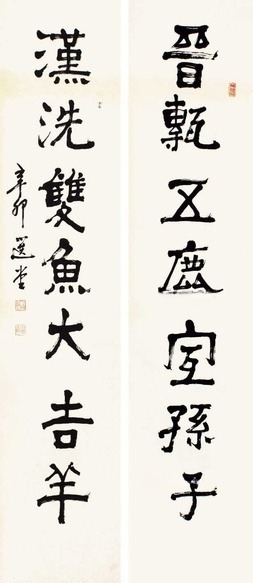 晉甎五鹿宜孫子
漢洗雙魚大吉羊
辛卯選堂